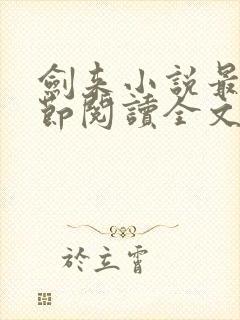 劍來小說最
節閱讀全文
於立霄